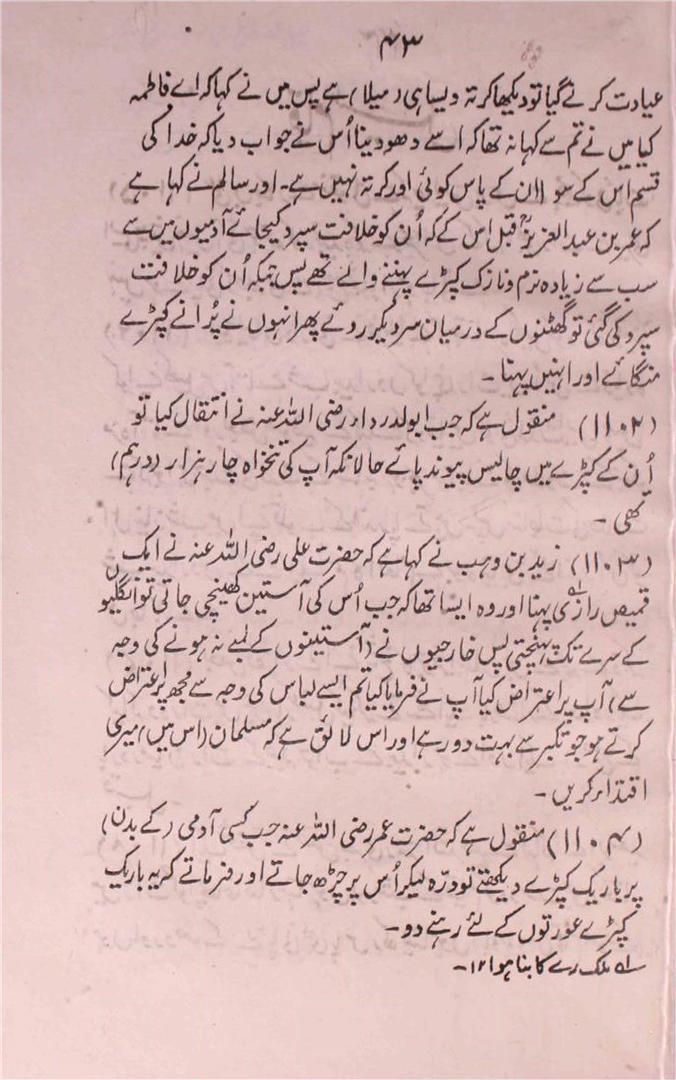 ۴۳
عیادت کرنے گیا تو دیکھا کرتہ ویسا ہی (میلا) ہے پس میں نے کہا کہ اے فاطمہ
کیا میں نے تم سے کہا نہ تھا کہ اسے دھو دینا اُس نے جواب دیا کہ خدا کی
قسم اس کے سوا ان کے پاس کوئی اور کرتہ نہیں ہے۔ اور سالم نے کہا ہے
کہ عمر بن عبد العزیزؒ قبل اس کے کہ اُن کو خلافت سپرد کیجائے آدمیوں میں سے
سب سے زیادہ نرم و نازک کپڑے پہننے والے تھے پس جبکہ اُن کو خلافت
سپرد کی گئی تو گھٹنوں کے درمیان سر دیکر روئے پھر انہوں نے پُرانے کپڑے
منگائے اور انہیں پہنا۔
(۱۱۰۲) منقول ہے کہ جب ابولدرداء رضی اللہ عنہ نے انتقال کیا تو
اُن کے کپڑے میں چالیس پیوند پائے حالانکہ آپ کی تنخواہ چار ہزار (درہم)
تھی۔
(۱۱۰۳) زید بن وہب نے کہا ہے کہ حضرت علی رضی اللہ عنہ نے ایک
قمیص رازی لہ پہنا اور وہ ایسا تھا کہ جب اُس کی آستین کھینچی جاتی تو انگلیوں
کے سرے تک پہنچتی پس خارجیوں نے (آستینوں کے لمبے نہ ہونے کی وجہ
سے) آپ پر اعتراض کیا آپ نے فرمایا کیا تم ایسے لباس کی وجہ سے مجھ پر اعتراض
کرتے ہو جو تکبر سے بہت دور ہے اور اس لائق ہے کہ مسلمان (اس میں) میری
اقتداء کریں۔
(۱۱۰۴) منقول ہے کہ حضرت عمر رضی اللہ عنہ جب کسی آدمی (کے بدن)
پر باریک کپڑے دیکھتے تو درّہ لیکر اُس پر چڑھ جاتے اور فرماتے کہ یہ باریک
کپڑے عورتوں کے لئے رہنے دو۔
لہ ملک رے کا بنا ہوا ۱۲۔